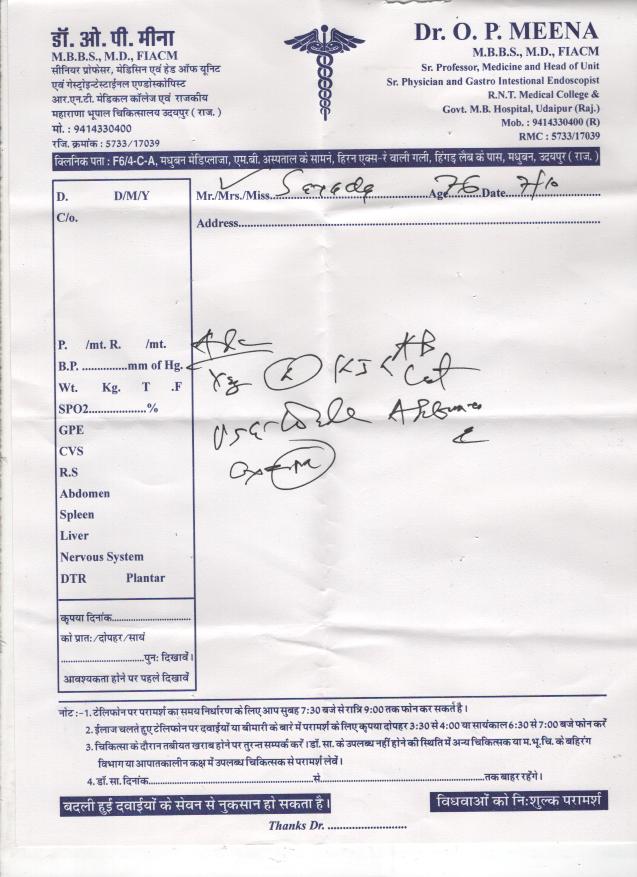 डॉ. ओ. पी. मीना
M.B.B.S., M.D., FIACM
सीनियर प्रोफेसर, मेडिसिन एवं हेड ऑफ यूनिट
एवं गेस्ट्रोइन्टेस्टाईनल एण्डोस्कोपिस्ट
आर.एन.टी. मेडिकल कॉलेज एवं राजकीय
महाराणा भूपाल चिकित्सालय उदयपुर ( राज. )
मो. : 9414330400
रजि. क्रमांक : 5733/17039
Dr. O. P. MEENA
M.B.B.S., M.D., FIACM
Sr. Professor, Medicine and Head of Unit
Sr. Physician and Gastro Intestional Endoscopist
R.N.T. Medical College &
Govt. M.B. Hospital, Udaipur (Raj.)
Mob. : 9414330400 (R)
RMC : 5733/17039
क्लिनिक पता : F6/4-C-A, मधुबन मेडिप्लाजा, एम.बी. अस्पताल के सामने, हिरन एक्स-रे वाली गली, हिंगड़ लैब के पास, मधुबन, उदयपुर ( राज. )
D. D/M/Y
Mr./Mrs./Miss. Age 76 Date 7/10
C/o.
Address
P. /mt. R. /mt.
B.P. mm of Hg.
Wt. Kg. T .F
SPO2 %
GPE
CVS
R.S
Abdomen
Spleen
Liver
Nervous System
DTR Plantar
कृपया दिनांक
को प्रातः/दोपहर/सायं
पुनः दिखावें।
आवश्यकता होने पर पहले दिखावें
नोट :-1. टेलिफोन पर परामर्श का समय निर्धारण के लिए आप सुबह 7:30 बजे से रात्रि 9:00 तक फोन कर सकते है।
2. ईलाज चलते हुए टेलिफोन पर दवाईयों या बीमारी के बारे में परामर्श के लिए कृपया दोपहर 3:30 से 4:00 या सायंकाल 6:30 से 7:00 बजे फोन करें
3. चिकित्सा के दौरान तबीयत खराब होने पर तुरन्त सम्पर्क करें। डॉ. सा. के उपलब्ध नहीं होने की स्थिति में अन्य चिकित्सक या म.भू.चि. के बहिरंग
विभाग या आपातकालीन कक्ष में उपलब्ध चिकित्सक से परामर्श लेवें।
4. डॉ. सा. दिनांक से तक बाहर रहेंगे।
बदली हुई दवाईयों के सेवन से नुकसान हो सकता है।
विधवाओं को नि:शुल्क परामर्श
Thanks Dr.